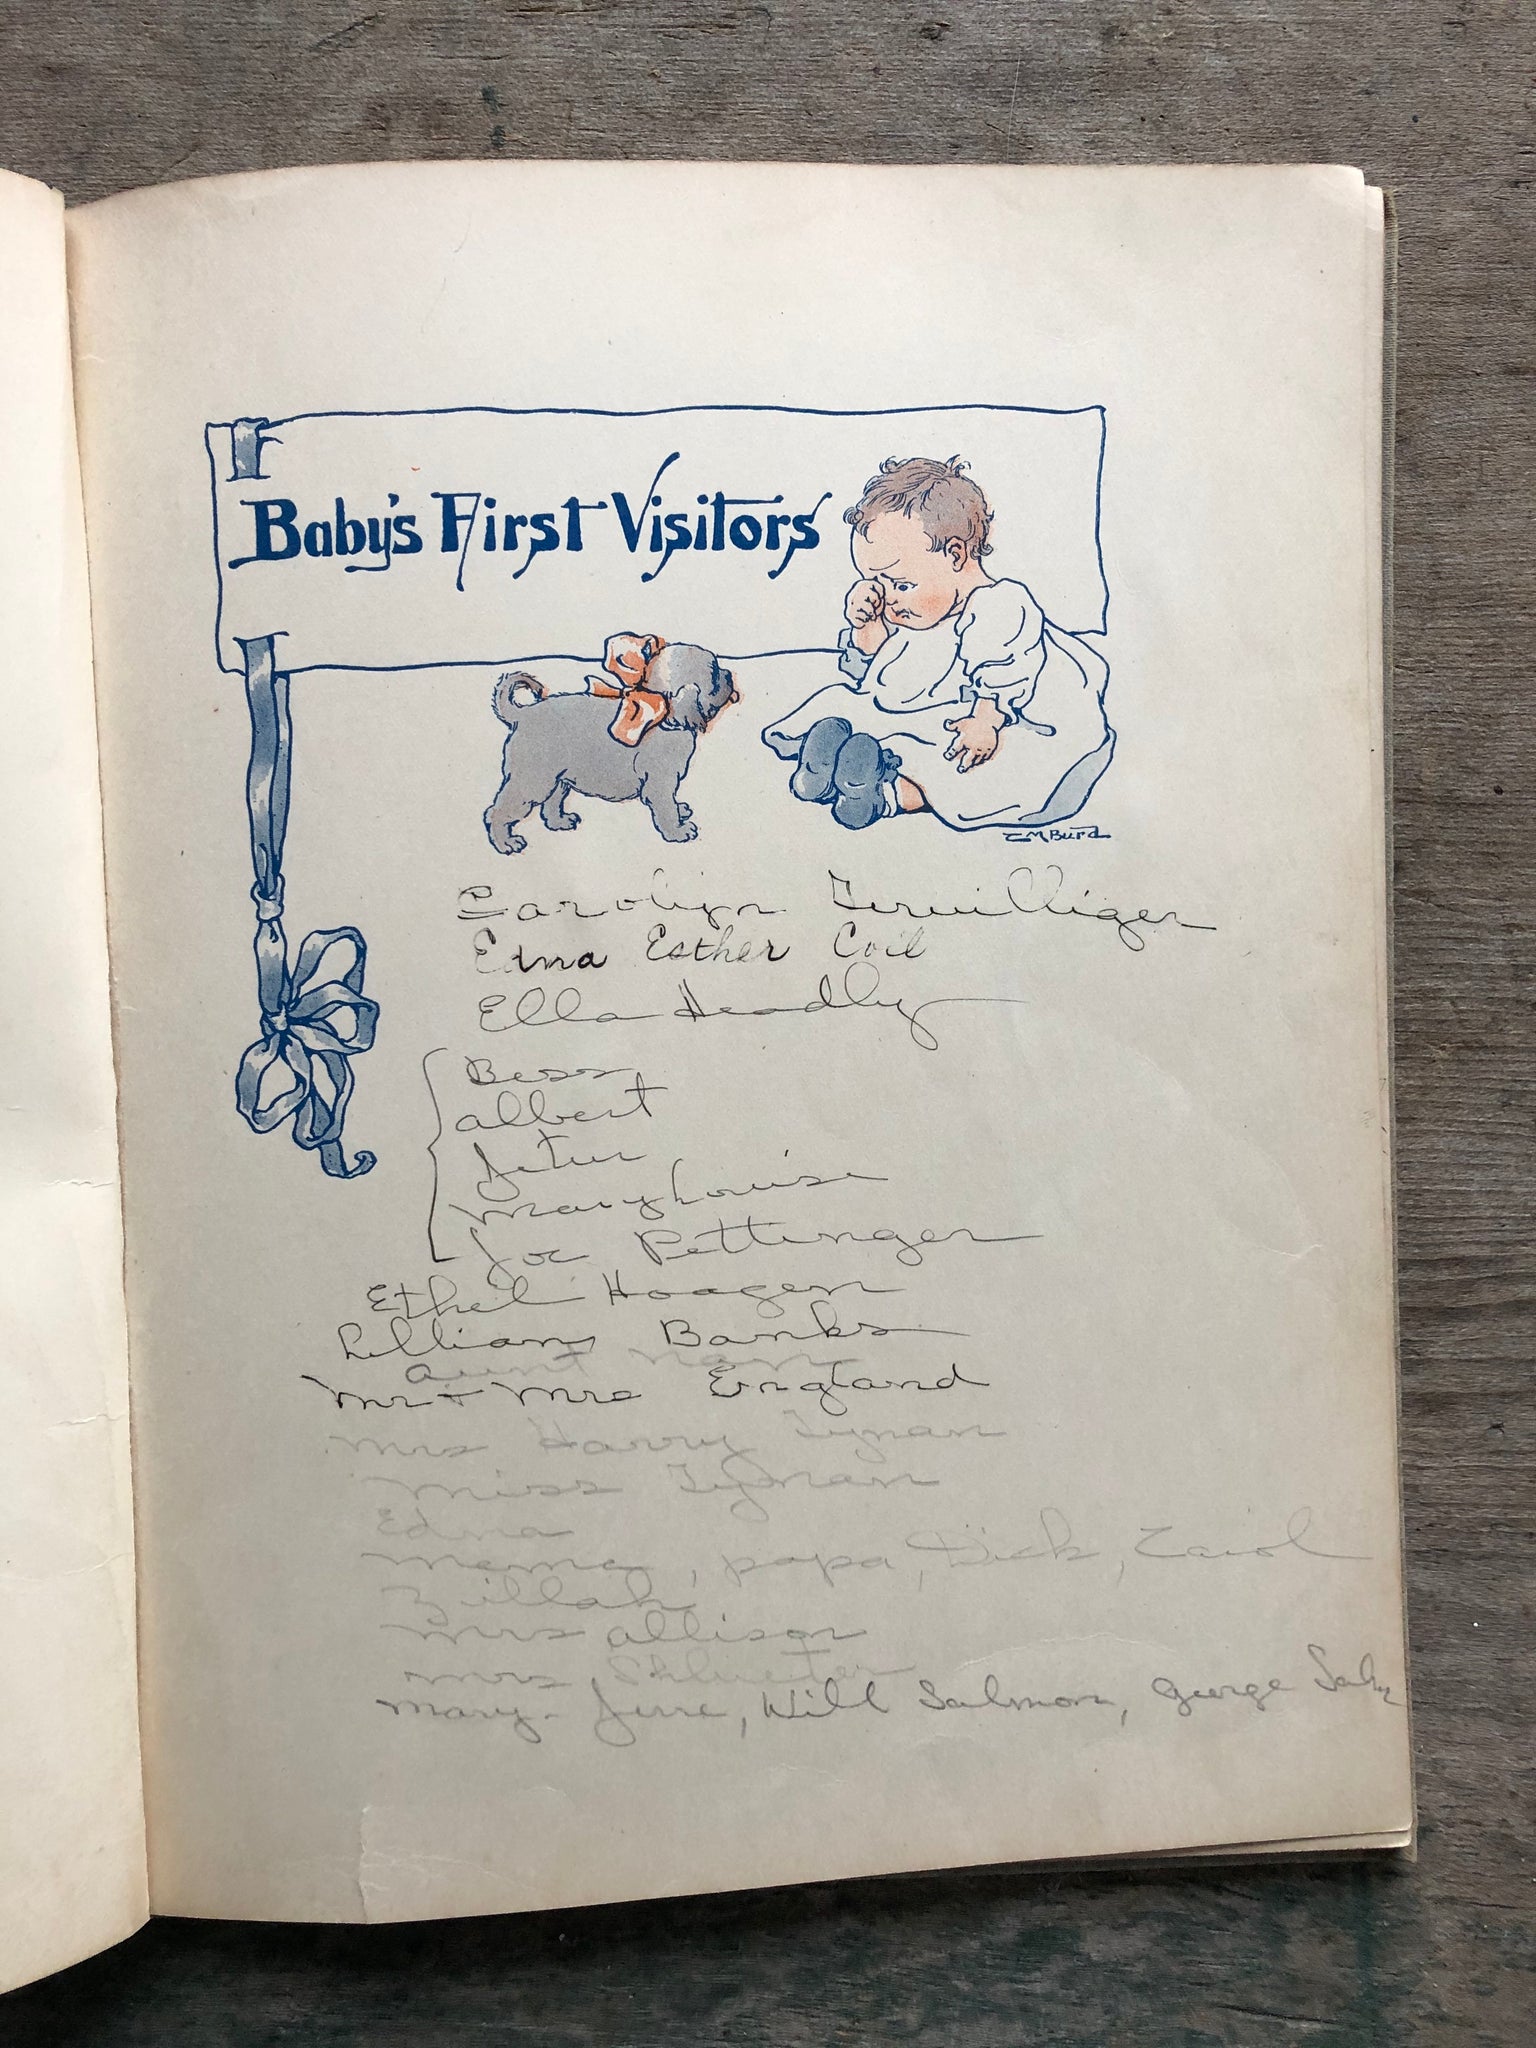 Baby's First Visitors
CMBurd
Carolyn Terwilliger
Edna Esther Coil
Ella Headly
Bess
Albert
Jetur
Mary Louise
Joe Pettinger
Ethel Hoagen
Lillian Banks
Aunt Nam
Mr + Mrs England
Mrs Harry Tynan
Miss Tynan
Edna
Mama, papa, Dick, Carol
Zillah
Mrs Allison
Mrs Shlueter
Mary - Jerre, Will Salmon, George